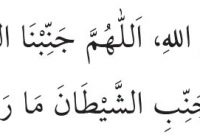 اللهِ، اَللّٰهُمَّ جَنِّبْنَا
جَنِّبِ الشَّيْطَانَ مَا